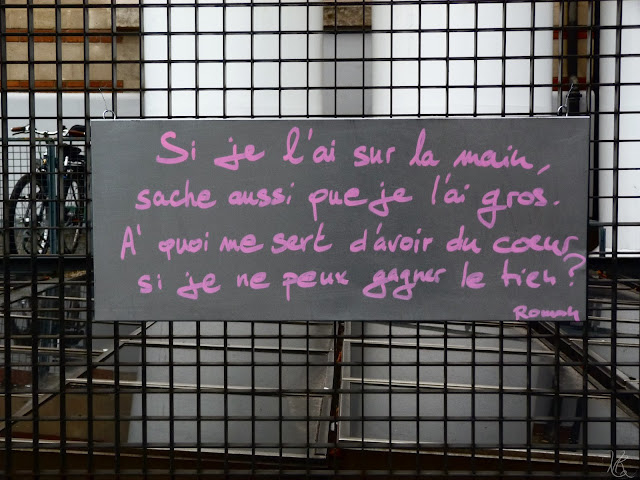 Si je l'ai sur la main,
sache aussi que je l'ai gros.
A' quoi me sert d'avoir du coeur
si je ne peux gagner le tien?
Romah